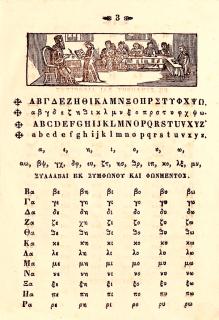 3
ΑΒΓΔΕΖΗΘΙΚΛΜΝΞΟΠΡΣΤΥΦΧΨΩ
αβγδεζηθικλμνξοπρστυφχψω.
ABCDEFGHIJKLMNOPQRSTUVXYZ
abcdefghijklmnopqrstuvxyz.
α, ε, η, ι, ο, υ, ω,
ΣΥΛΛΑΒΑΙ ΕΚ ΣΥΜΦΩΝΟΥ ΚΑΙ ΦΩΝΗΕΝΤΟΣ.
Βα βε βη βι βο βυ βω
Γα γε γη γι γο γυ γω
Δα δε δη δι δο δυ δω
Ζα ζε ζη ζι ζο ζυ ζω
Θα θε θη θι θο θυ θω
Κα κε κη κι κο κυ κω
Λα λε λη λι λο λυ λω
Μα με μη μι μο μυ μω
Να νε νη νι νο νυ νω
Ξα ξε ξη ξι ξο ξυ ξω
Πα πε πη πι πο πυ πω
Ρα ρε ρη ρι ρο ρυ ρω